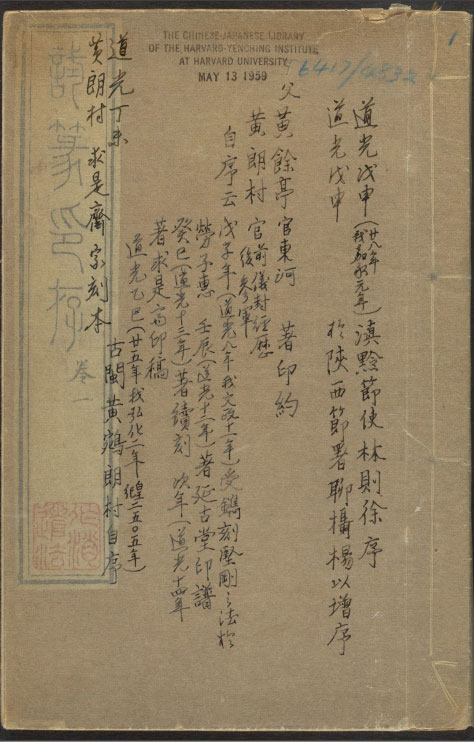 THE CHINESE-JAPANESE LIBRARY
OF THE HARVARD-YENCHING INSTITUTE
AT HARVARD UNIVERSITY
MAY 13 1959
1
道光戊申(廿八年我嘉永元年)滇黔節使林則徐序
道光戊申 於陝西節署聊攝楊以增序
父黄餘亭 官東河 著印約
黄朗村 官前儀封經歴後參軍
自序云 戊子年(道光八年我文政十一年)受鐫刻堅剛之法於
勞子惠 壬辰(道光十二年)著延古堂印譜
癸巳(道光十三年)著續刻 次年(道光十四年
著求是斎印稿
道光乙巳(廿五年我弘化二年皇二五〇五年)
古閩黄鵷朗村自序
道光丁未
黄朗村 求是齋家刻本
篆印存 巻一